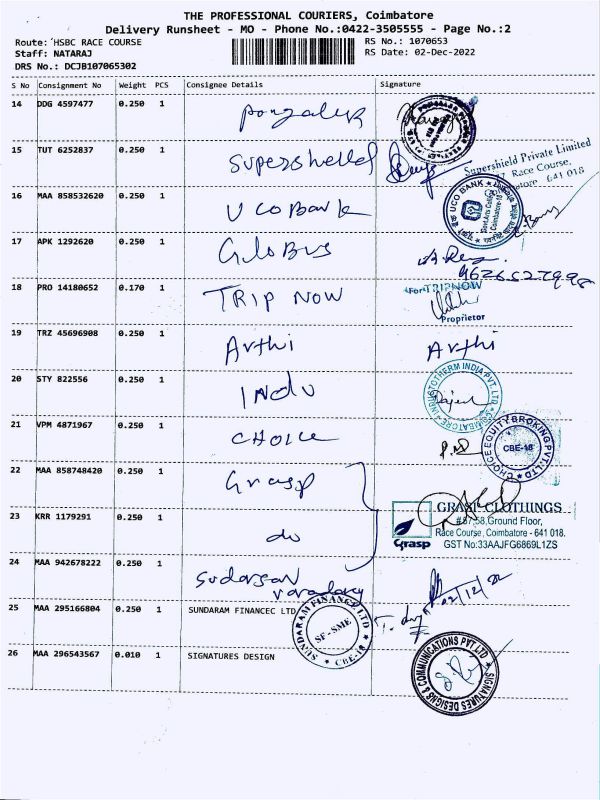 THE PROFESSIONAL COURIERS, Coimbatore
Delivery Runsheet - MO - Phone No.:0422-3505555 - Page No.:2
Route: HSBC RACE COURSE RS No.: 1070653
Staff: NATARAJ RS Date: 02-Dec-2022
DRS No.: DCJB107065302
S No Consignment No Weight PCS Consignee Details Signature
14 DDG 4597477 0.250 1
15 TUT 6252837 0.250 1 Supershelled
Supershield Private Limited
Race Course,
641 018
16 MAA 858532620 0.250 1 UCO Bank
UCO BANK
Coimbatore-18
17 APK 1292620 0.250 1 GloBus
9626527998
18 PRO 14180652 0.170 1 TRIP NOW
For TRIPNOW
Proprietor
19 TRZ 45696908 0.250 1 Arthi Arthi
20 STY 822556 0.250 1 INDU
INDUSTOTHERM INDIA PVT. LTD. COIMBATORE
21 VPM 4871967 0.250 1 CHOICE
CHOICE EQUITY BROKING PVT. LTD.
CBE-18
22 MAA 858748420 0.250 1 Grasp
GRASP CLOTHINGS
#87,58,Ground Floor,
Race Course, Coimbatore - 641 018.
Grasp GST No:33AAJFG6869L1ZS
23 KRR 1179291 0.250 1 do
24 MAA 942678222 0.250 1 Sudarsan
02/12/22
25 MAA 295166804 0.250 1 SUNDARAM FINANCEC LTD
SUNDARAM FINANCE LTD
SF-SME
CBE-18
26 MAA 296543567 0.010 1 SIGNATURES DESIGN
SIGNATURES DESIGNS & COMMUNICATIONS PVT LTD